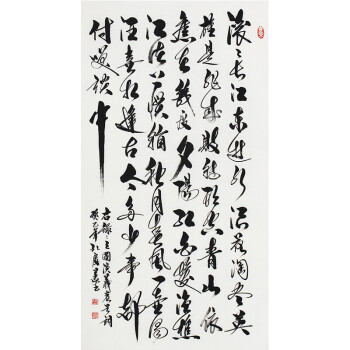 滚滚长江东逝水浪花淘尽英
雄是非成败转头空青山依
旧在几度夕阳红白发渔樵
江渚上惯看秋月春风一壶浊
酒喜相逢古今多少事都
付笑谈中
右录三国演义卷首词